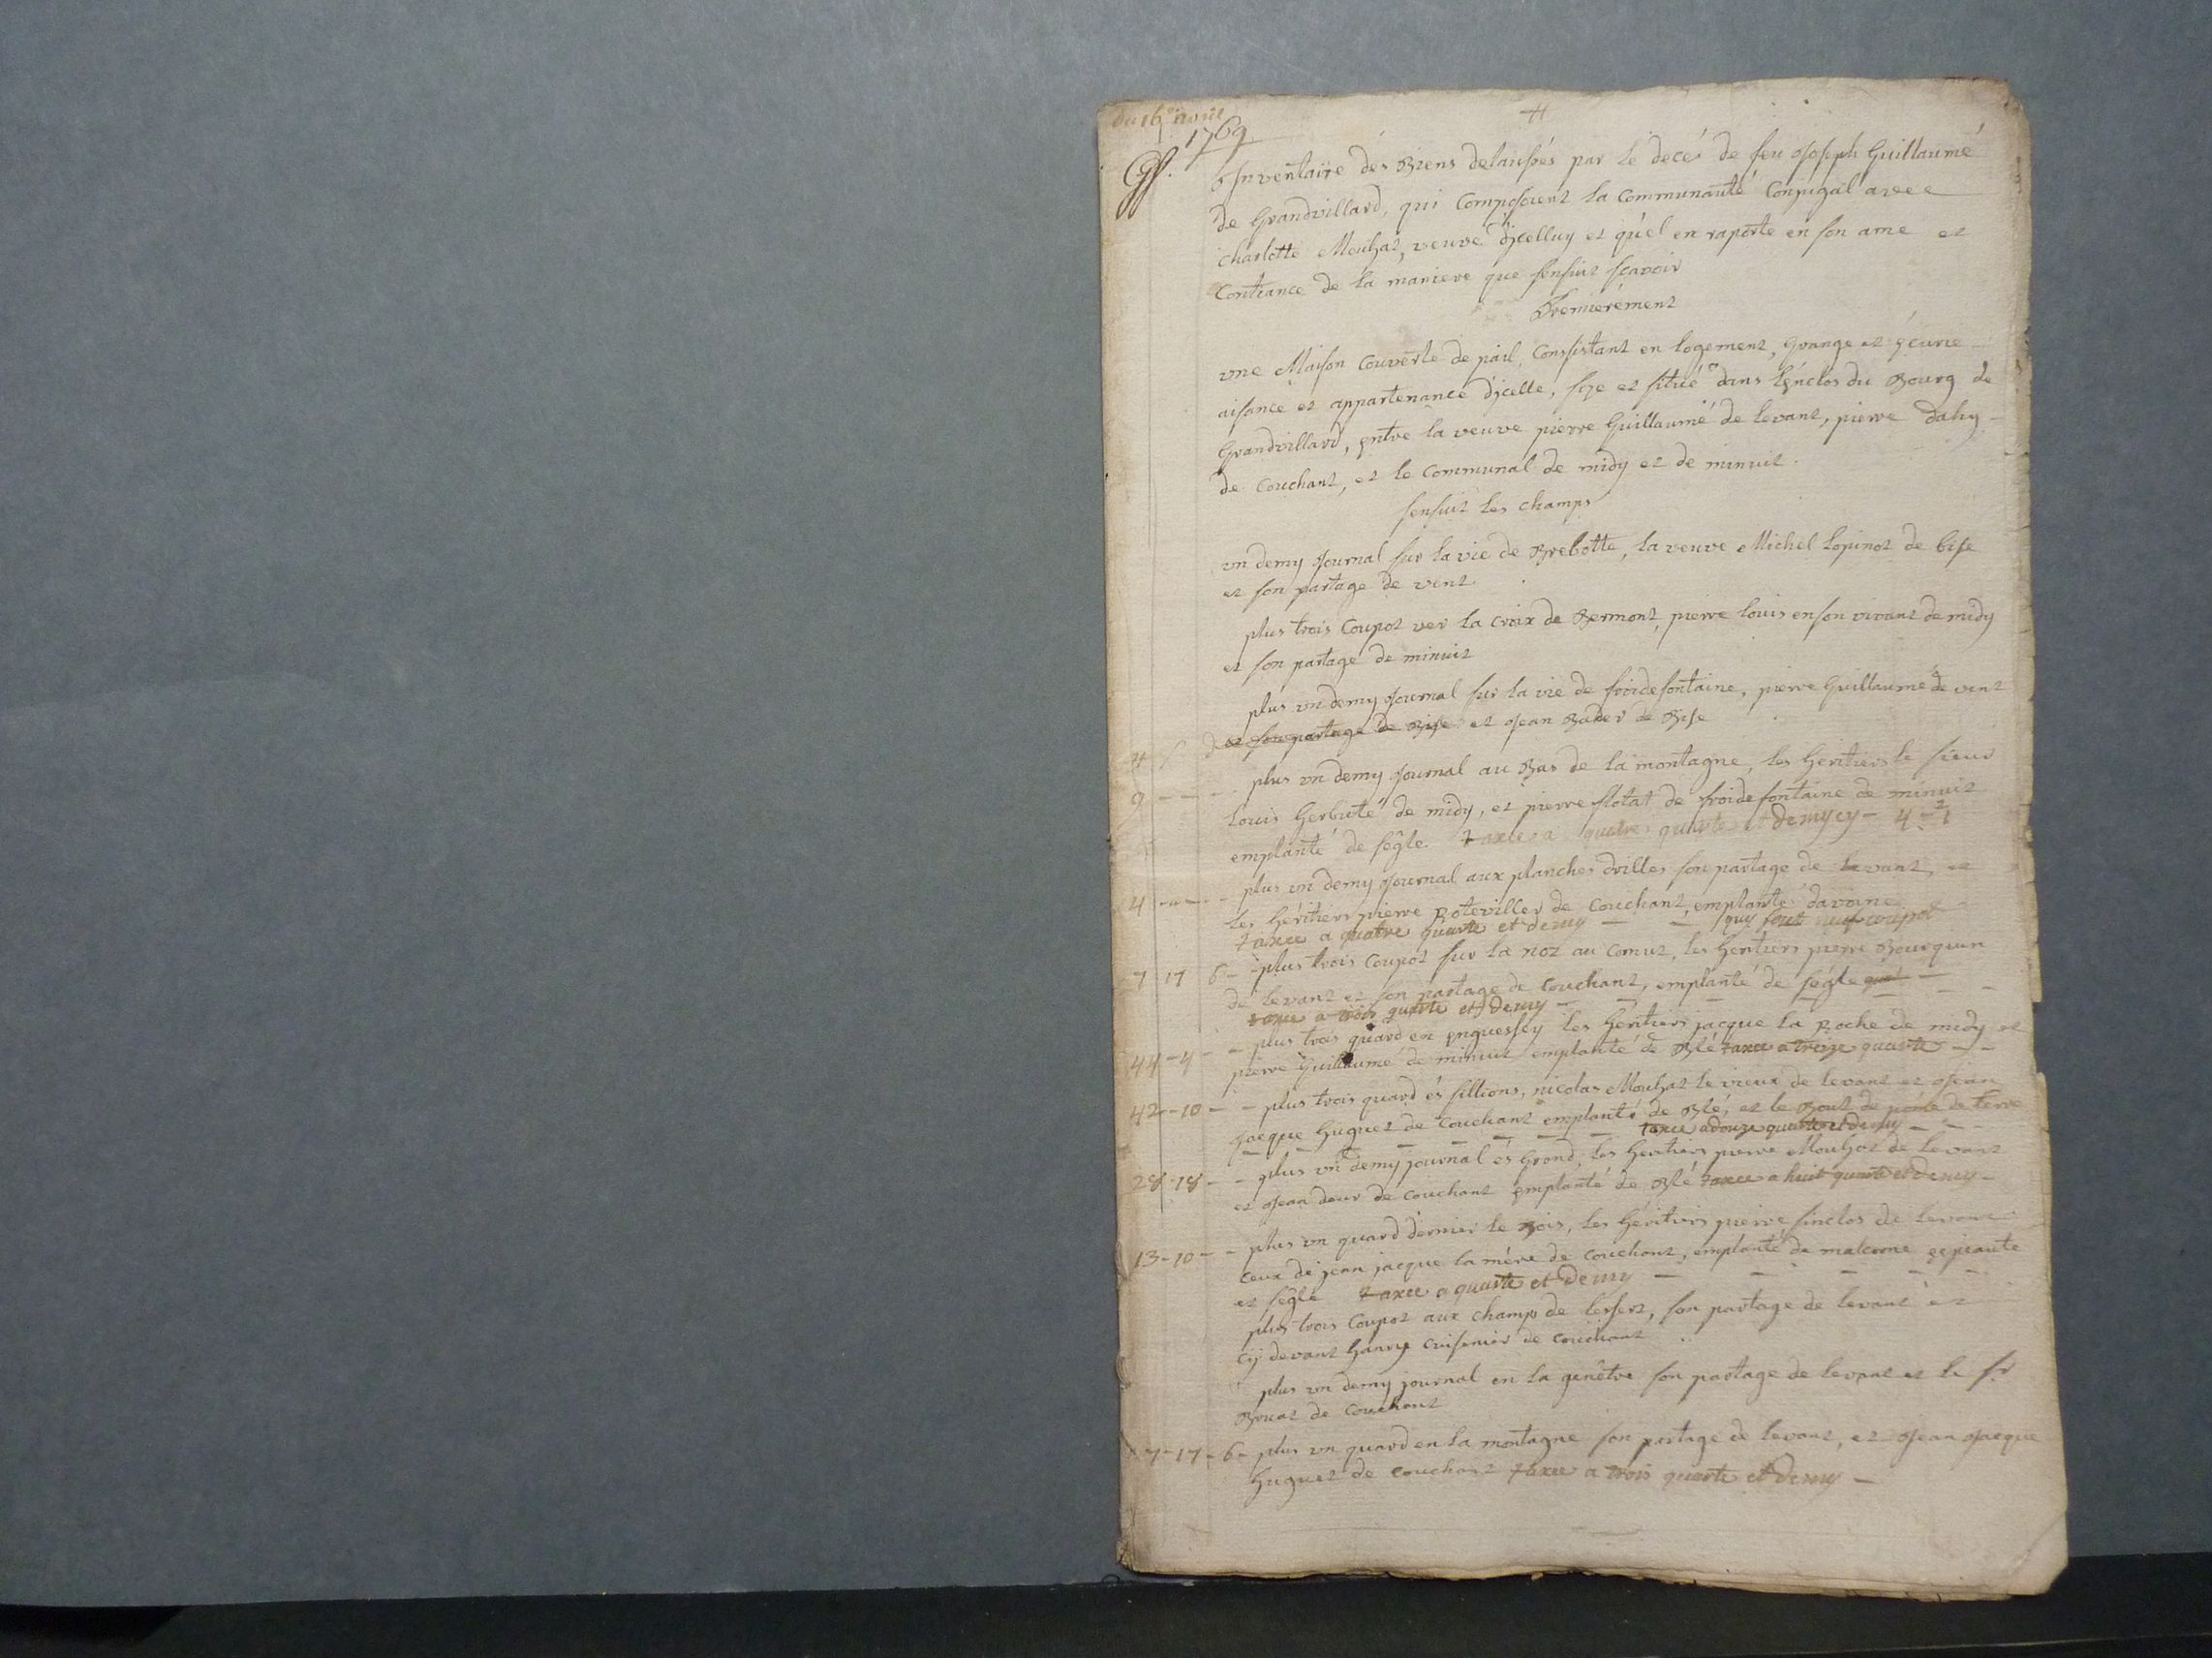 du 16e avril
1769
Inventaire des Biens delaissés par le decé de feu Joseph Guillaumé
de Grandvillard, qui Composoient la Communauté Conjugal avec
charlotte Mouhat, veuve d'jcelluy et qu'el en raporte en son ame et
Contiance de la maniere que sensuit sçavoir
Premierement
une Maison Couverte de pail, Conssistant en logement, grange et écurie
aisance et appartenance d'jcelle, size et situé dans l'énclos du Bourg de
Grandvillard, entre la veuve pierre Guillaumé de levant, pierre dahy
de Couchant, et le Communal de midy et de minuit.
sensuit les champs
un demy Journal sur la vie de Brebotte, la veuve Michel Lopinot de bise
et son partage de vent.
plus trois Coupot ver la croix de Bermont, pierre louis en son vivant de midy
et son partage de minuit
plus un demy Journal sur la vie de froidefontaine, pierre Guillaumé de vent
et son partage de Bise et Jean Bader de Bise
9 - - - plus un demy Journal au Bas de la montagne, les héritiers le sieur
Louis Gerbuté de midy, et pierre flotat de froidefontaine de minuit
emplanté de ségle. taxée a quatre quarte et demy cy - 4 - 1/2
4 - - - plus un demy Journal aux planches drilles son partage de levant, et
les héritiers pierre Poteviller de Couchant, emplanté davoine
taxée a quatre quarte et demy - - quy font neuf coupot
7 17 6 - plus trois Coupot sur la noz au Cornut, les héritiers pierre Bourquin
de levant et son partage de Couchant, emplanté de ségle
taxée a trois quarte et demy - - - -
44 - 4 - - plus trois quard en enguessey les héritiers jacque la Roche de midy et
pierre Guillaumé de minuit emplanté de Blé taxée a treize quarte - -
42 - 10 - - plus trois quard és sillions, nicolas Mouhat le vieux de levant et Jean
Jacque huguet de Couchant emplanté de Blé, et le Bout de de terre
taxée a douze quarte et demy - -
28 - 18 - - plus un demy journal és Grond, les héritiers pierre Mouhat de levant
et Jean dour de Couchant emplanté de Blé taxée a huit quarte et demy -
13 - 10 - - plus un quard dernier le Bois, les héritiers pierre sinclos de levant
ceux de jean jacque la mére de Couchant, emplanté de malcorne épeaute
et ségle taxée a quarte et demy - - - - -
plus trois Coupot aux champs de lessert, son partage de levant et
cÿ devant hanrÿ Cuisenier de Couchant
plus un demy journal en la genêtre son partage de levant et le sr
Bruat de Couchant
7 - 17 - 6 - plus un quard en la montagne son partage de levant, et Jean Jacque
huguet de Couchant taxée a trois quarte et demy -